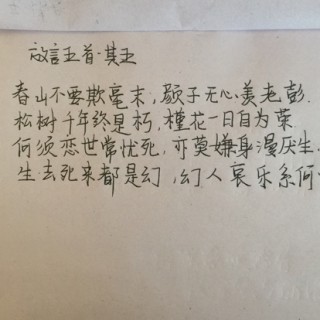 放言五首·其五
春山不要欺毫末，颜子无心羡老彭.
松树千年终是朽，槿花一日自为荣
何须恋世常忧死，亦莫嫌身漫厌生.
生去死来都是幻，幻人哀乐系何